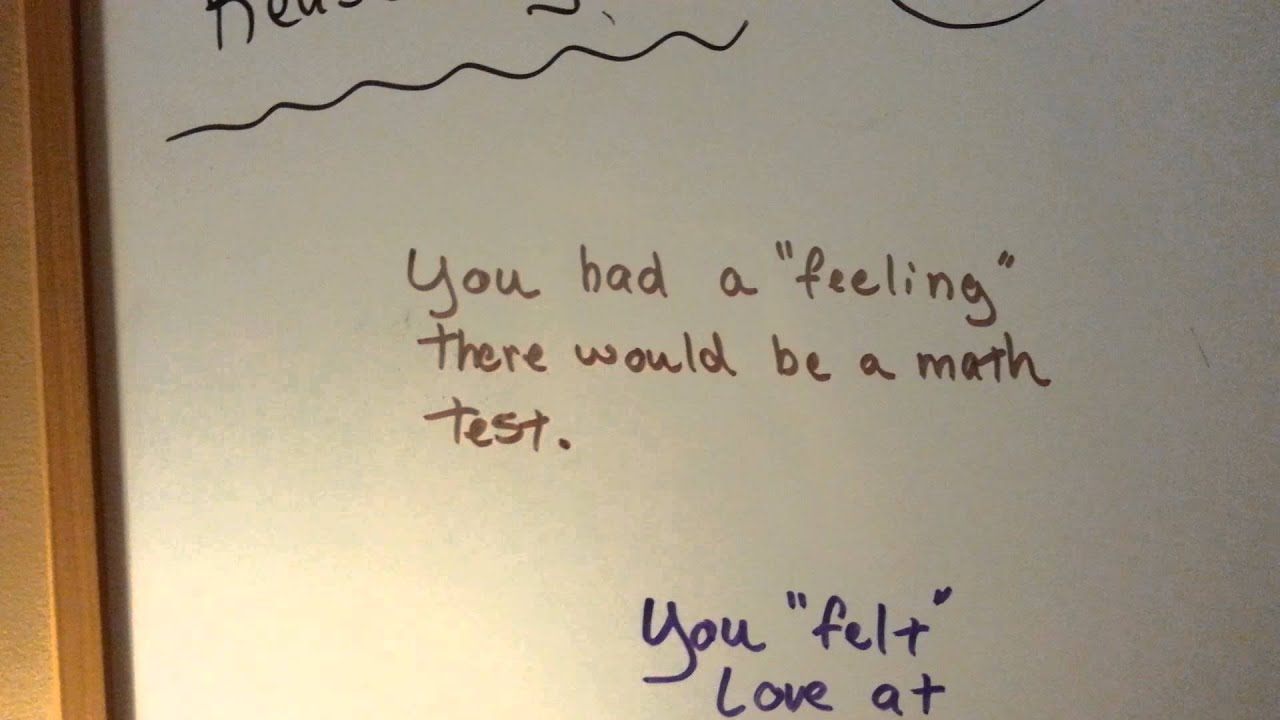 You had a "feeling"
there would be a math
test.
You "felt"
Love at